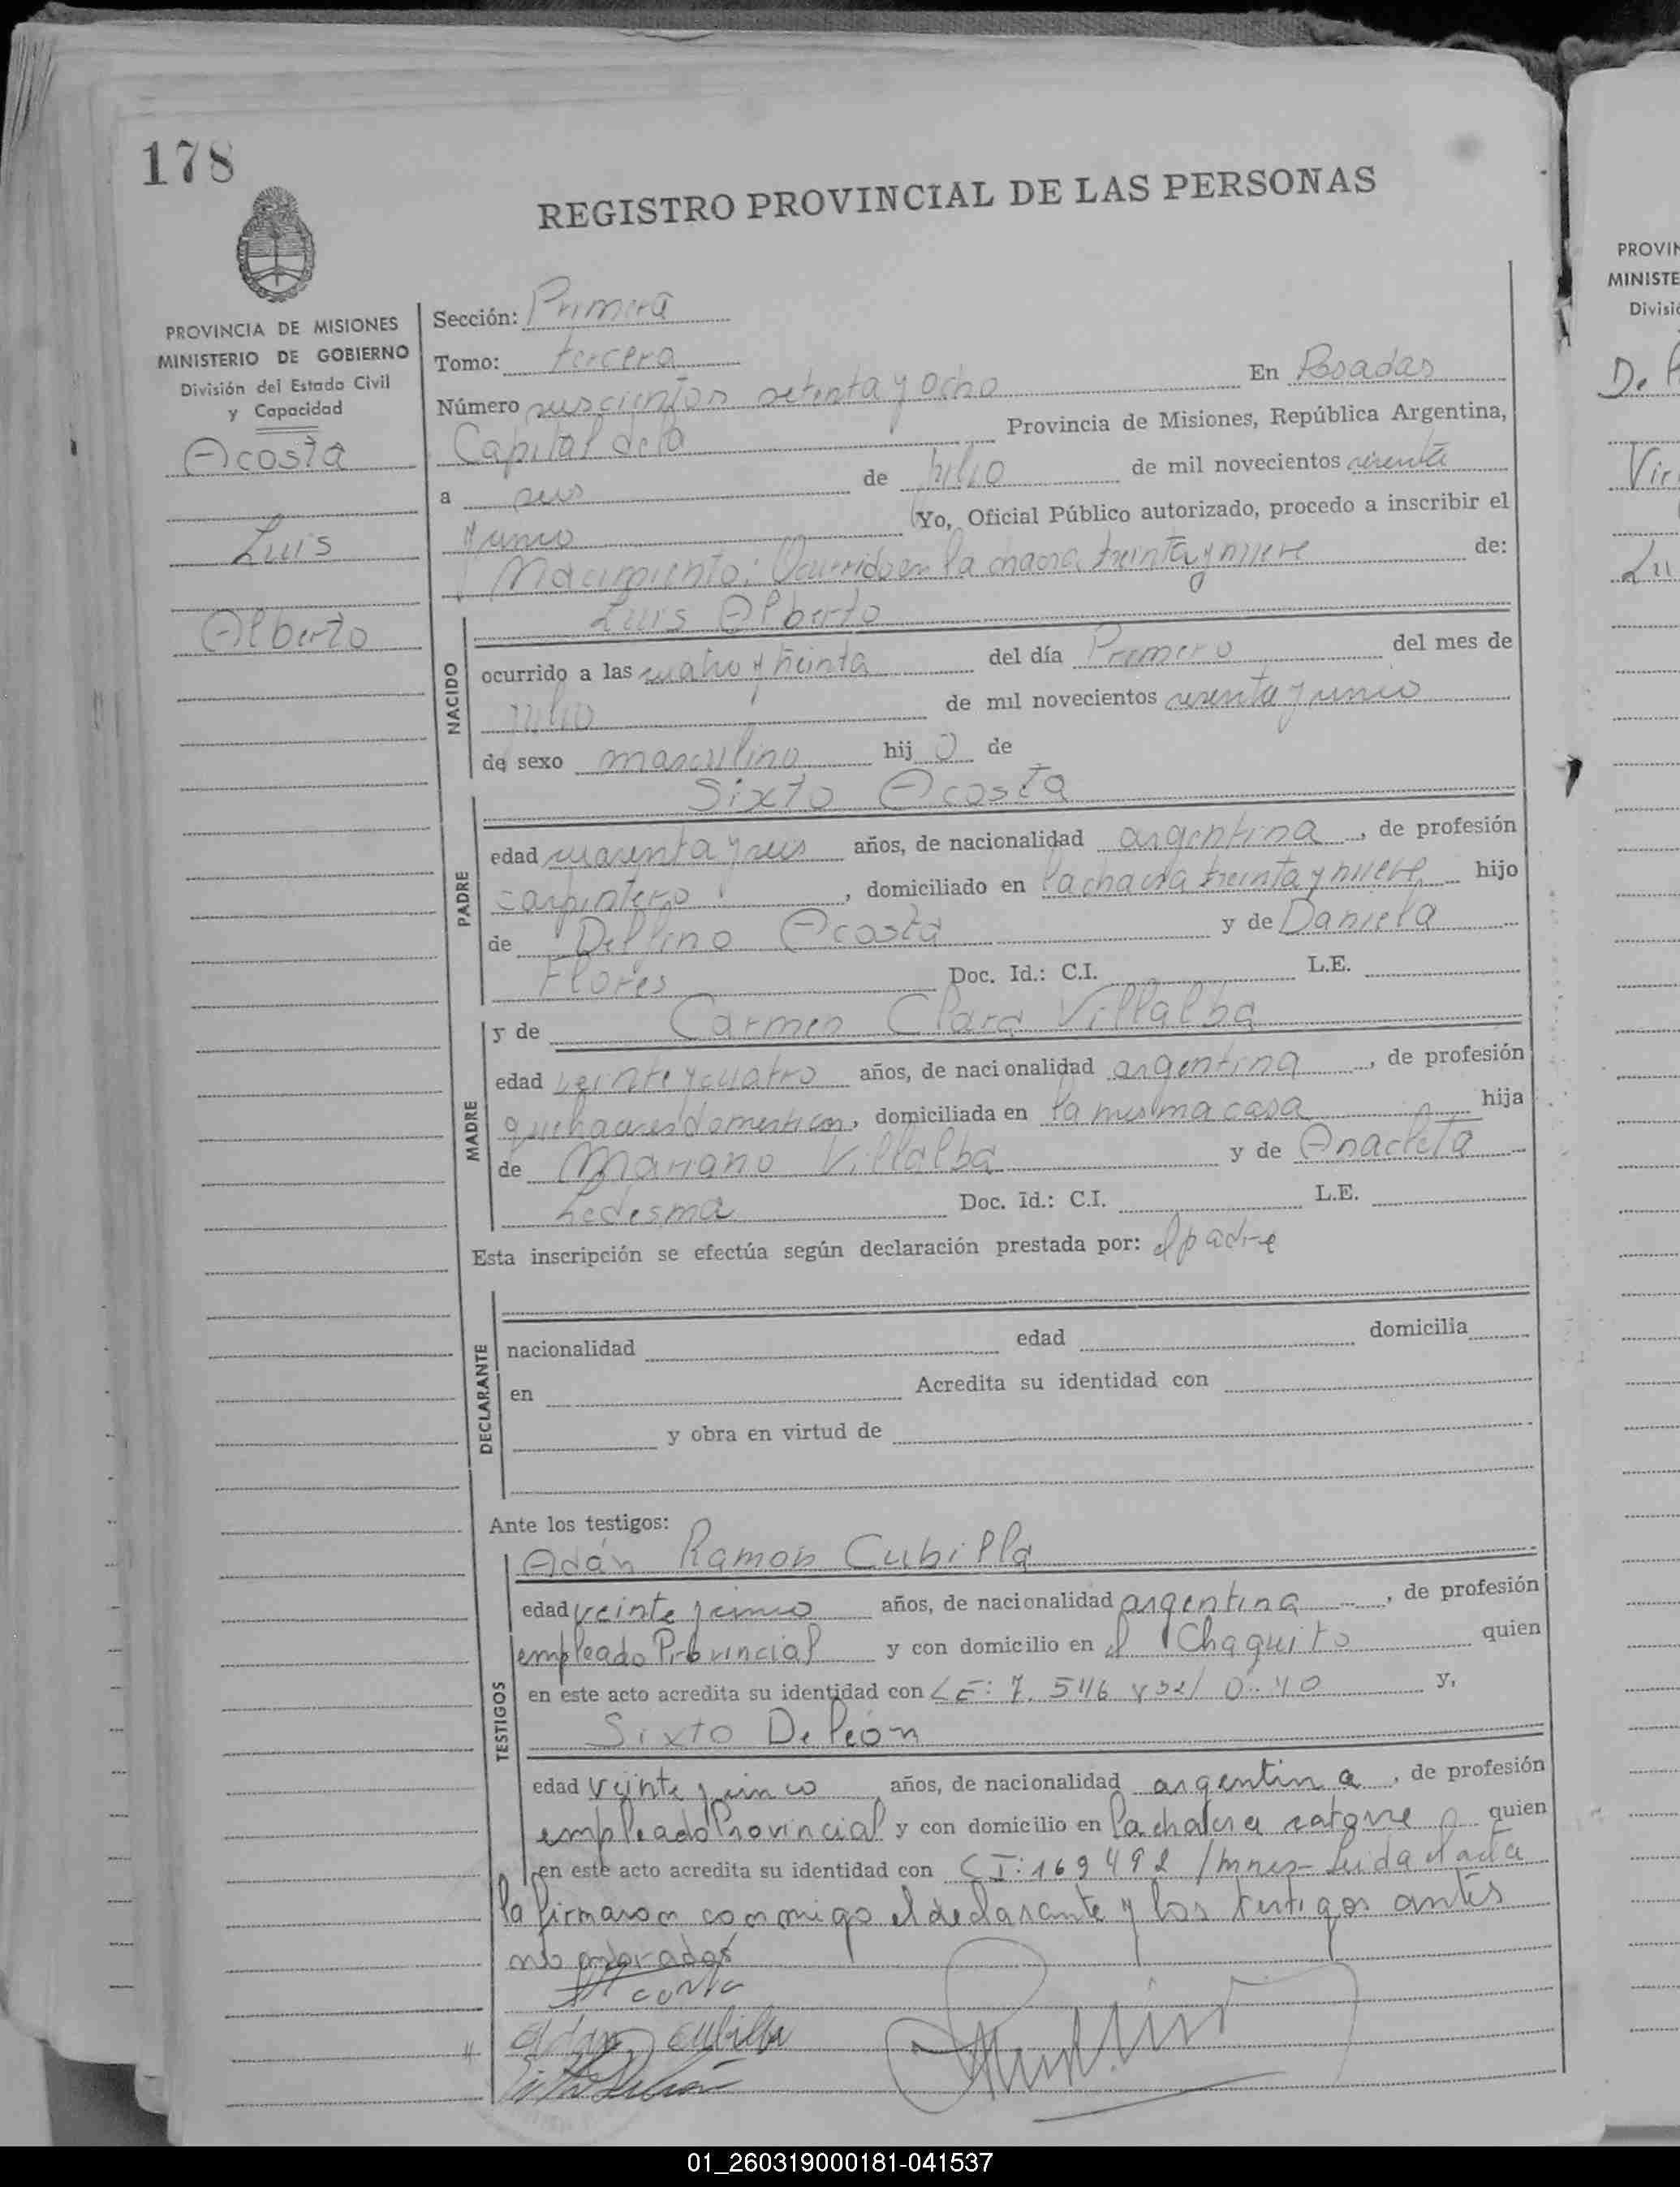 178
REGISTRO PROVINCIAL DE LAS PERSONAS
PROVINCIA DE MISIONES
MINISTERIO DE GOBIERNO
División del Estado Civil
y Capacidad
Acosta
Luis
Alberto
Sección: Primera
Tomo: tercera
Número seiscientos setenta y ocho En Posadas
Capital de la Provincia de Misiones, República Argentina,
a seis de julio de mil novecientos sesenta
y cinco Yo, Oficial Público autorizado, procedo a inscribir el
Nacimiento: Ocurrido en la chacra treinta y nueve de:
NACIDO
Luis Alberto
ocurrido a las cuatro y treinta del día Primero del mes de
julio de mil novecientos sesenta y cinco
de sexo masculino hij o de
PADRE
Sixto Acosta
edad cuarenta y seis años, de nacionalidad argentina, de profesión
carpintero, domiciliado en la chacra treinta y nueve hijo
de Delfino Acosta y de Daniela
Flores Doc. Id.: C.I. L.E.
MADRE
y de Carmen Clara Villalba
edad veinte y cuatro años, de nacionalidad argentina, de profesión
quehaceres domesticos, domiciliada en la misma casa hija
de Mariano Villalba y de Anacleta
Ledesma Doc. Id.: C.I. L.E.
Esta inscripción se efectúa según declaración prestada por: el padre
DECLARANTE
nacionalidad edad domicilia
en Acredita su identidad con
y obra en virtud de
Ante los testigos:
TESTIGOS
Adán Ramon Cubilla
edad veinte y cinco años, de nacionalidad argentina, de profesión
empleado Provincial y con domicilio en el Chaquito quien
en este acto acredita su identidad con LE: 7. 546 y,
Sixto De León
edad veinte y cinco años, de nacionalidad argentina, de profesión
empleado Provincial y con domicilio en la chacra catorce quien
en este acto acredita su identidad con CI: 169492 /mnes- Leida el acta
la firmaron conmigo el declarante y los testigos antes
Acosta
Adan Cubilla
PROVIN
MINISTE
Divisió
De
Vir
Lu
01_260319000181-041537